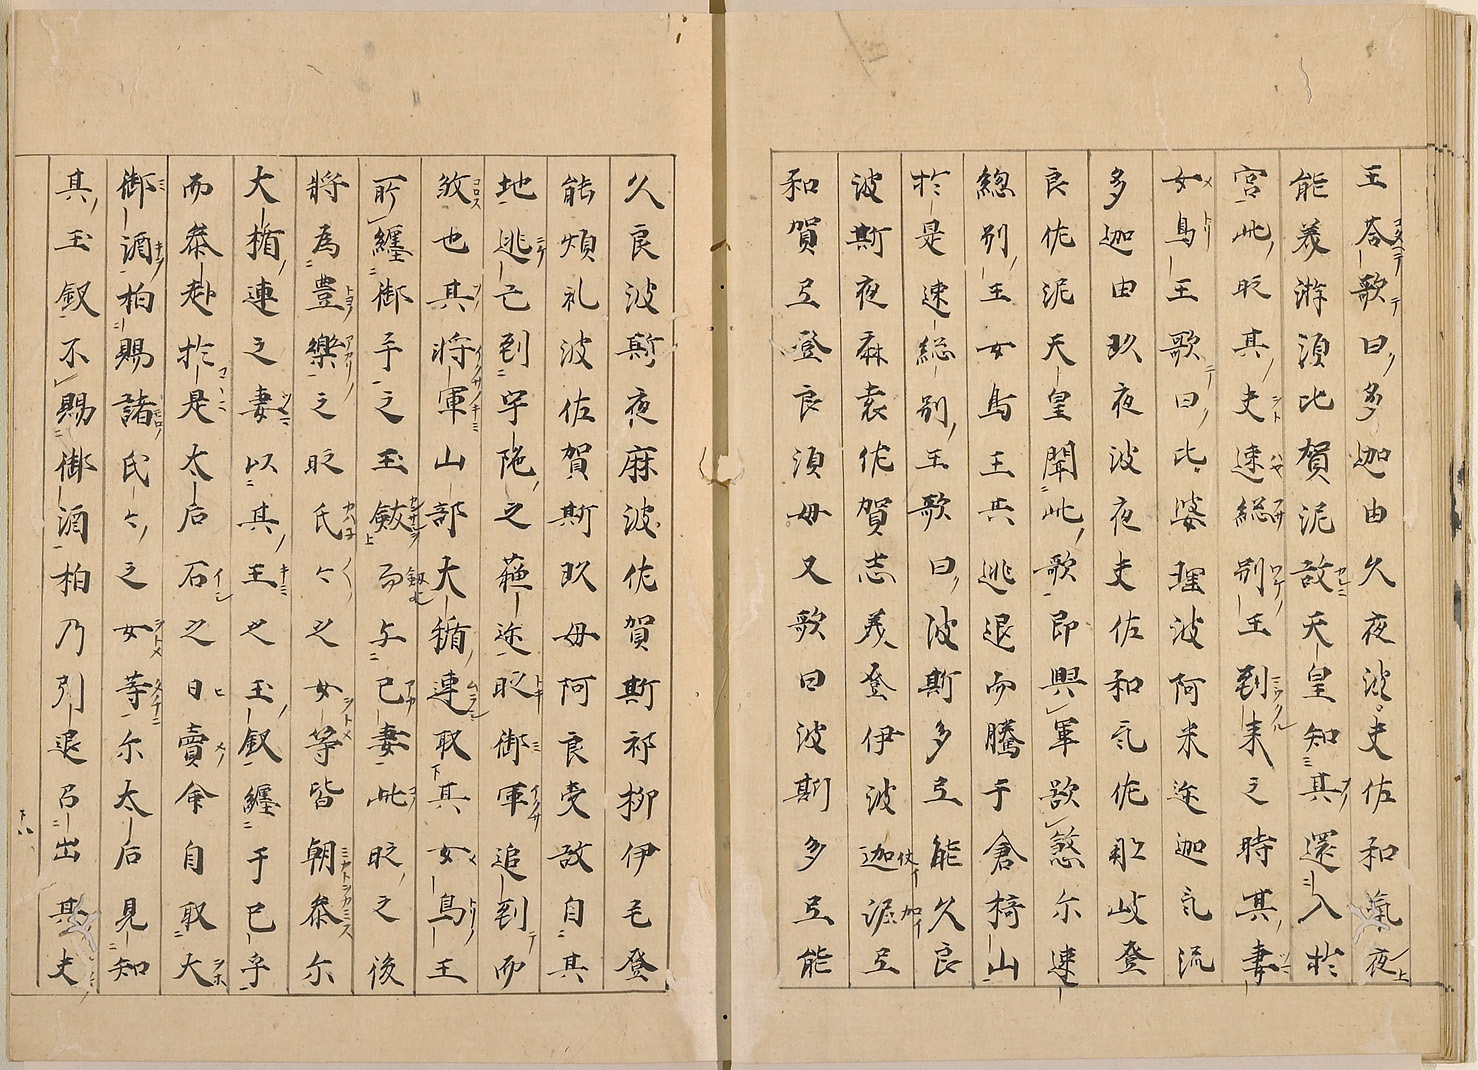 王荅歌曰多迦由久夜波夫佐和氣夜
能美游須比賀泥故天皇知其還入於
宮此時其夫速総別王到来之時其妻
女鳥王歌曰比婆理波阿米迩迦氐流
多迦由玖夜波夜夫佐和気佐耶岐登
良佐泥天皇聞此歌即興軍欲煞尓速
總別王女鳥王共逃退而騰于倉椅山
於是速総別王歌曰波斯多弖能久良
波斯夜麻袁佐賀志美登伊波迦泥弖
和賀弖登良須母又歌曰波斯多弖能
久良波斯夜麻波佐賀斯祁杼伊毛登
能煩礼波佐賀斯玖母阿良受故自其
地逃亡到宇陁之蘓迩時御軍追到而
煞也其将軍山部大楯連取其女鳥王
所纏御手之玉釼而与己妻此時之後
将為豊樂之時氏々之女等皆朝叅尓
大楯連之妻以其王之玉釼纏于己手
而叅赴於是太后石之日賣命自取大
御酒柏賜諸氏々之女等尓太后見知
其玉釼不賜御酒柏乃引退召出其夫